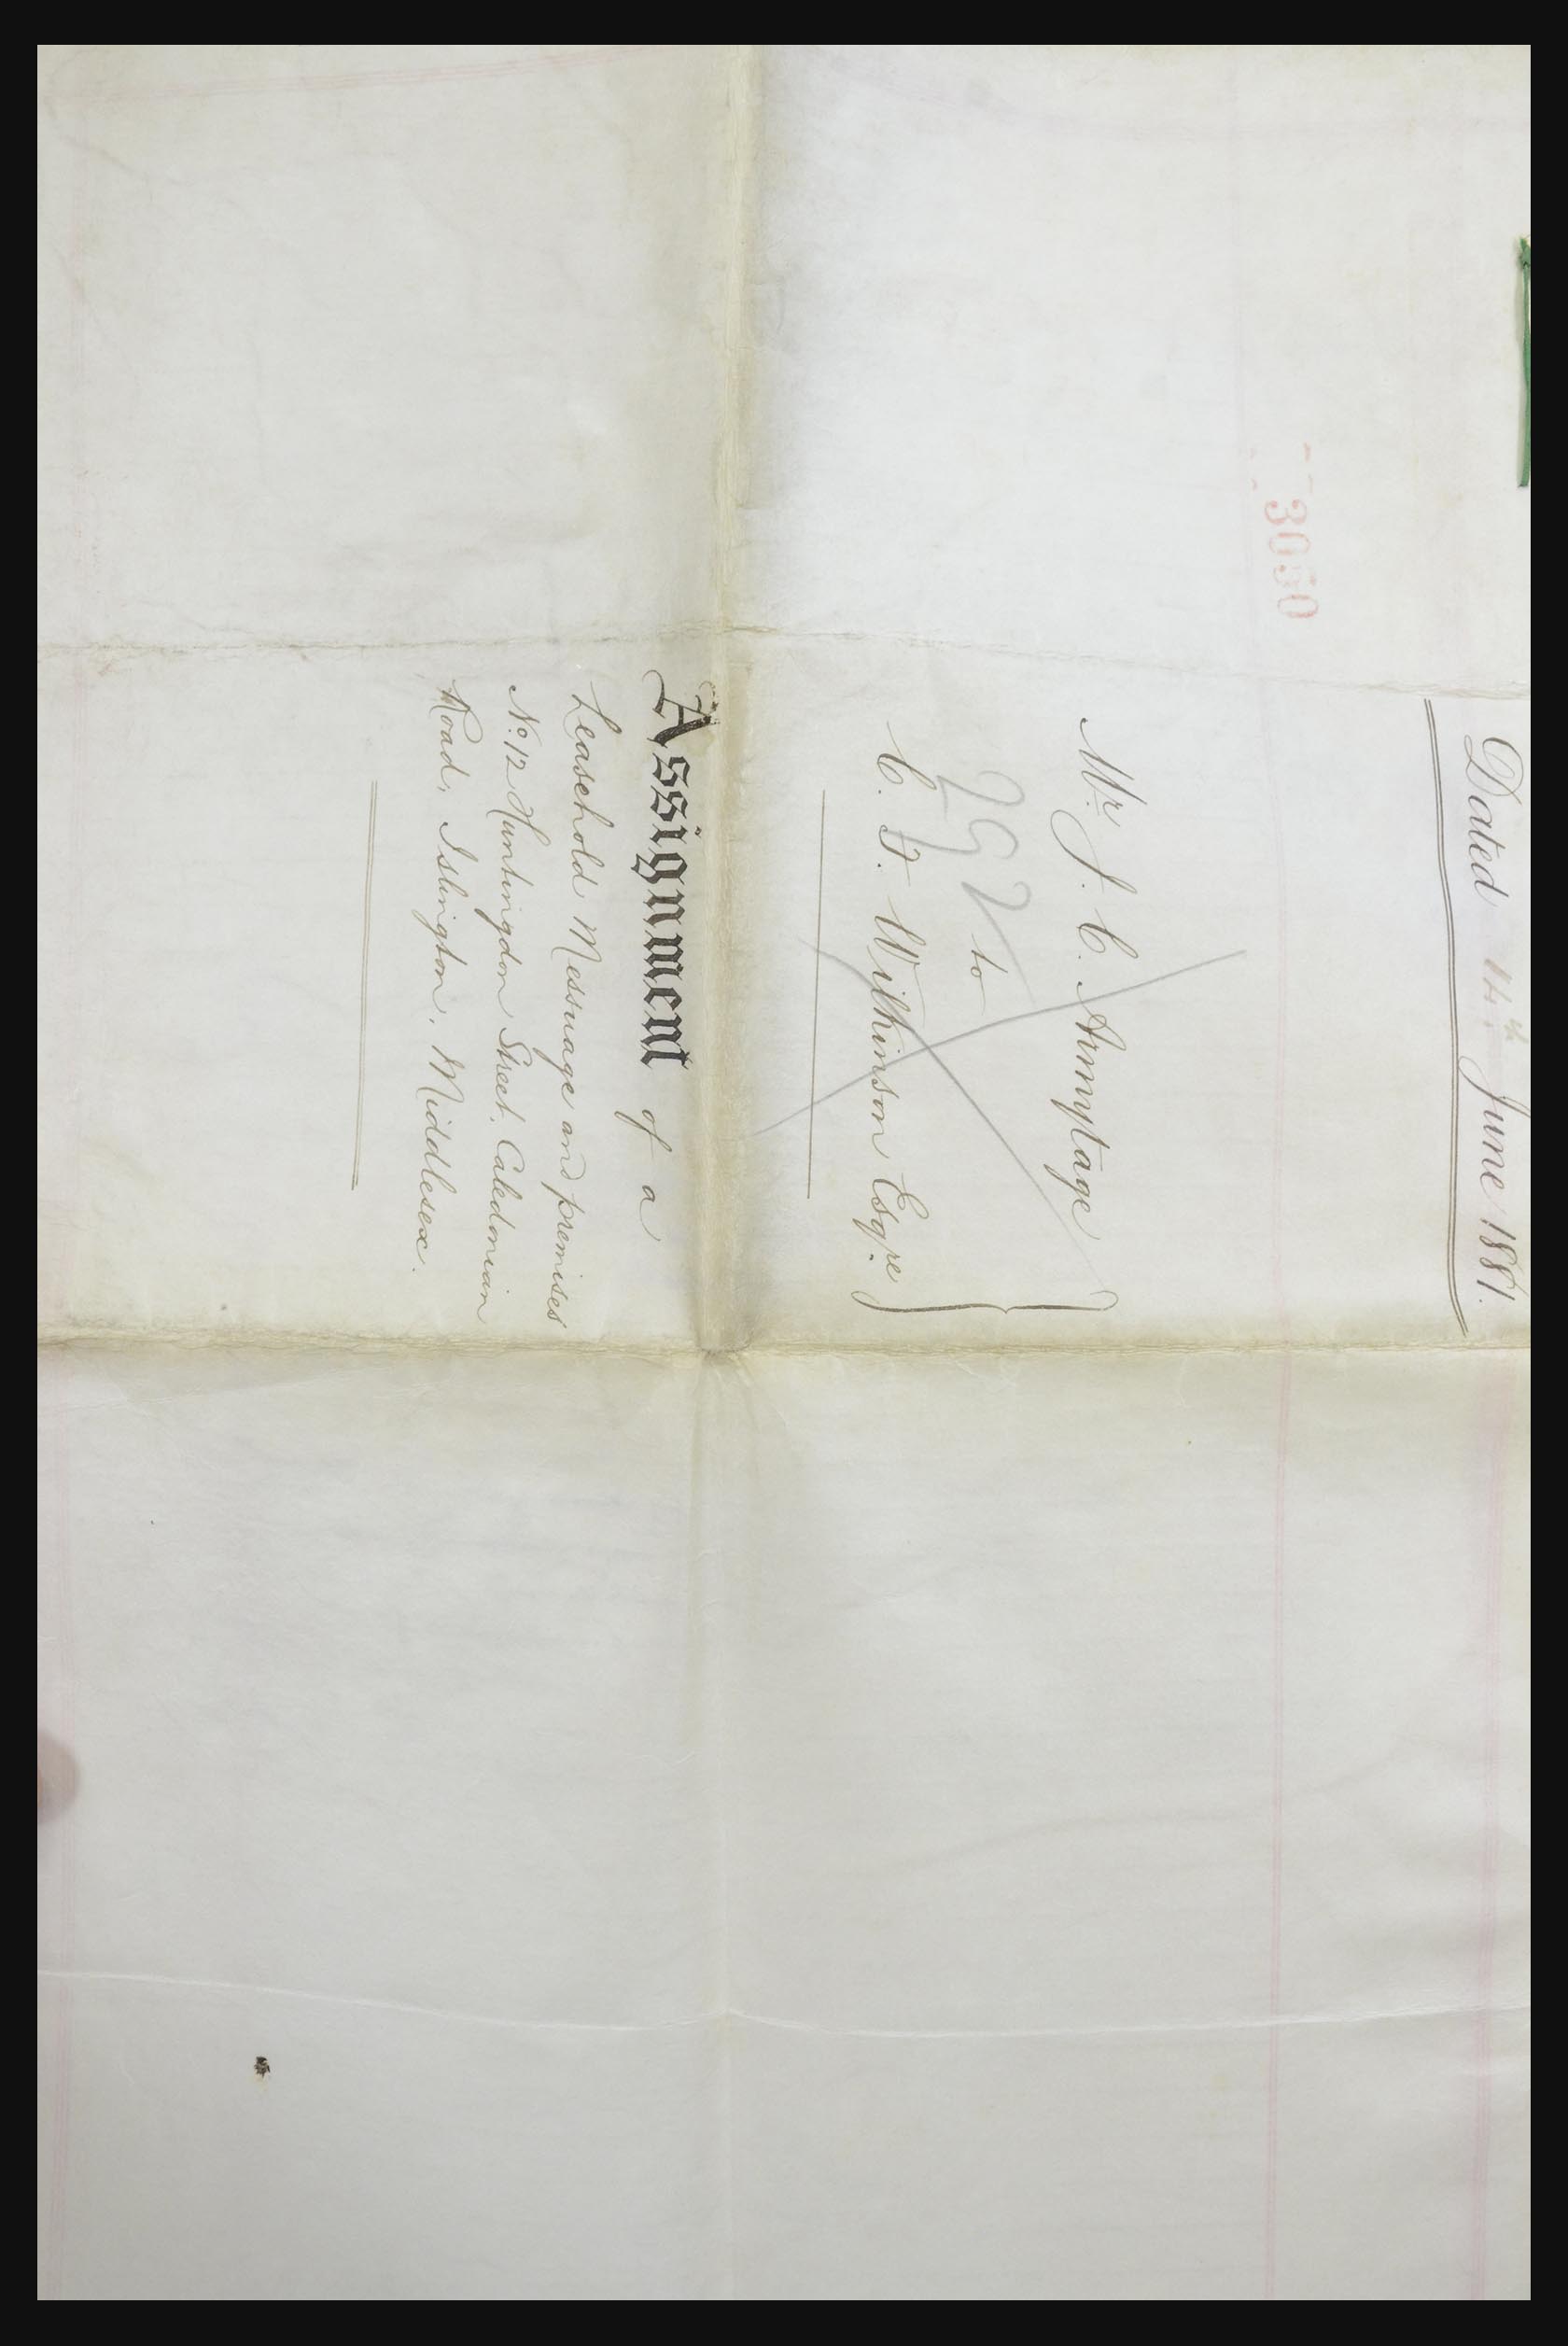 Dated 14th June 1881.
3050
Mr. J. C. Armytage
to
C. F. Wilkinson Esqre.
Assignment of a
Leasehold Messuage and premises
No. 12 Huntingdon Street, Caledonian
Road, Islington, Middlesex.